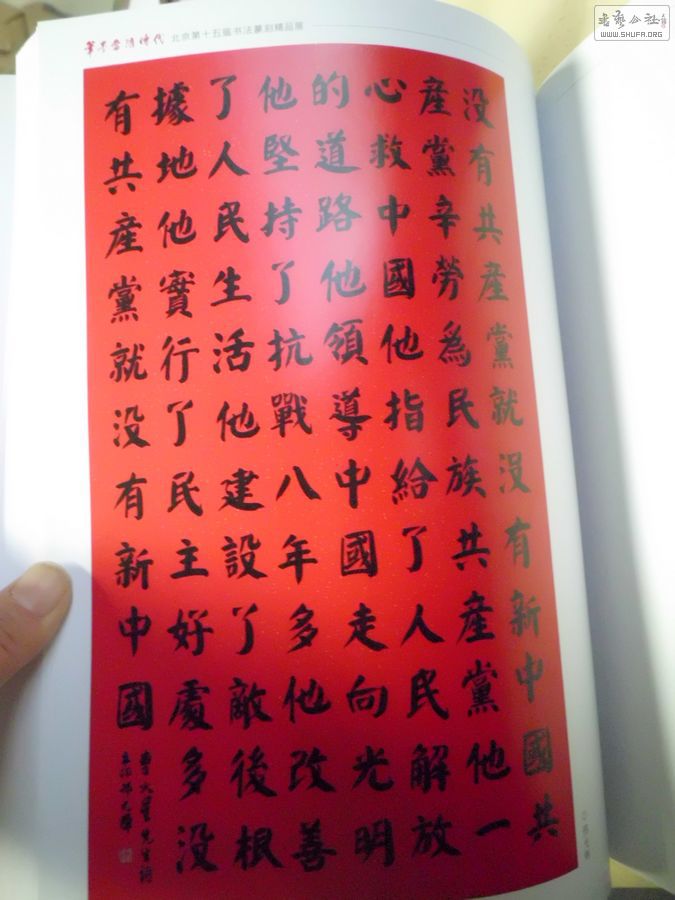 筆墨當隨時代 北京第十五届书法篆刻精品展
書藝公社
WWW.SHUFA.ORG
没有共產黨就没有新中國共
產黨辛勞為民族共產黨他一
心救中國他指給了人民解放
的道路他領導中國走向光明
他堅持了抗戰八年多他改善
了人民生活他建設了敵後根
據地他實行了民主好處多没
有共產黨就没有新中國
曹火星先生词